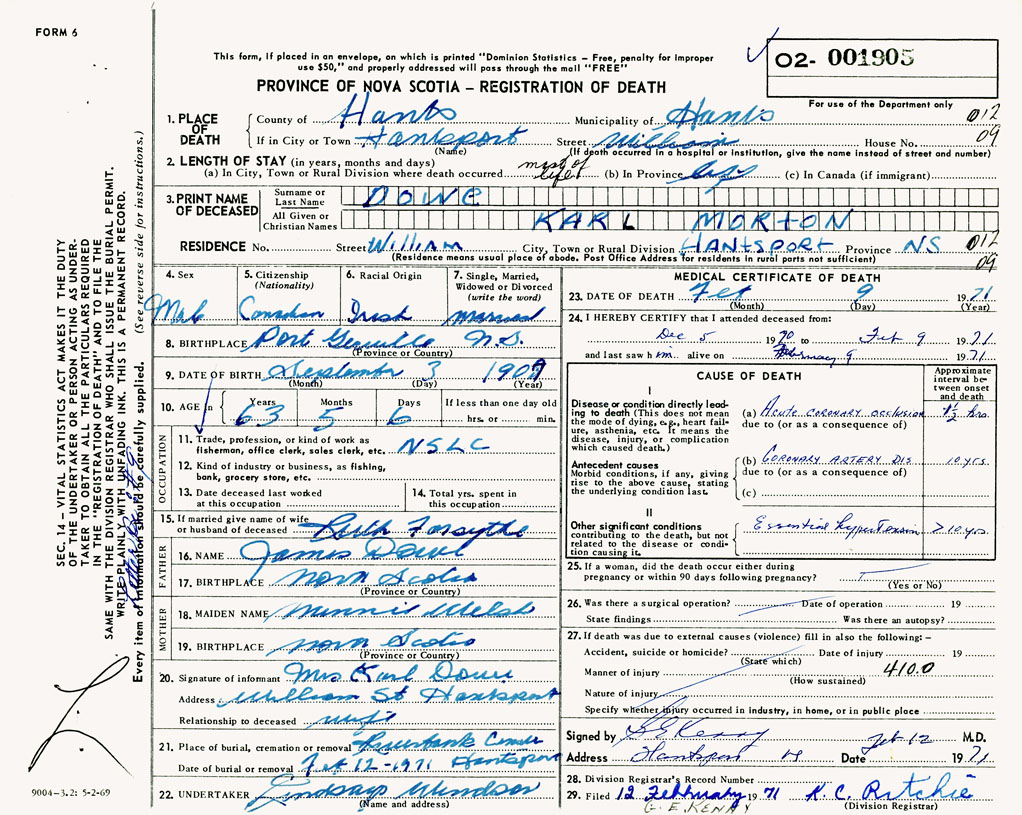 FORM 6
This form, if placed in an envelope, on which is printed "Dominion Statistics – Free, penalty for improper
use $50," and properly addressed will pass through the mail "FREE"
O2- 001905
For use of the Department only
PROVINCE OF NOVA SCOTIA – REGISTRATION OF DEATH
1. PLACE OF DEATH
County of Hants Municipality of Hants 012
If in City or Town Hantsport Street William House No. 09
(Name) (If death occurred in a hospital or institution, give the name instead of street and number)
2. LENGTH OF STAY (in years, months and days)
(a) In City, Town or Rural Division where death occurred most of life (b) In Province life (c) In Canada (if immigrant)
3. PRINT NAME OF DECEASED
Surname or Last Name DOWE
All Given or Christian Names KARL MORTON
RESIDENCE No. Street William City, Town or Rural Division HANTSPORT Province NS 012
(Residence means usual place of abode. Post Office Address for residents in rural parts not sufficient) 09
4. Sex
Male
5. Citizenship
(Nationality)
Canadian
6. Racial Origin
Irish
7. Single, Married,
Widowed or Divorced
(write the word)
married
8. BIRTHPLACE Port N.S.
(Province or Country)
9. DATE OF BIRTH September 3 1907
(Month) (Day) (Year)
10. AGE in
Years Months Days If less than one day old
63 5 6 hrs. or min.
OCCUPATION
11. Trade, profession, or kind of work as
fisherman, office clerk, sales clerk, etc. NSLC
12. Kind of industry or business, as fishing,
bank, grocery store, etc.
13. Date deceased last worked
at this occupation
14. Total yrs. spent in
this occupation
15. If married give name of wife
or husband of deceased Ruth Forsythe
FATHER
16. NAME James Dowe
17. BIRTHPLACE Nova Scotia
(Province or Country)
MOTHER
18. MAIDEN NAME Minnie Welsh
19. BIRTHPLACE Nova Scotia
(Province or Country)
20. Signature of informant Mrs Karl Dowe
Address William St Hantsport
Relationship to deceased wife
21. Place of burial, cremation or removal Riverbank
Date of burial or removal Feb 12-1971 Hantsport
22. UNDERTAKER Lindsays Windsor
(Name and address)
MEDICAL CERTIFICATE OF DEATH
23. DATE OF DEATH Feb 9 1971
(Month) (Day) (Year)
24. I HEREBY CERTIFY that I attended deceased from:
Dec 5 1970 to Feb 9 1971
and last saw him alive on February 9 1971
CAUSE OF DEATH
Approximate
interval be-
tween onset
and death
I
Disease or condition directly lead-
ing to death (This does not mean
the mode of dying, e.g., heart fail-
ure, asthenia, etc. It means the
disease, injury, or complication
which caused death.)
(a) Acute coronary occlusion 1½ hrs.
due to (or as a consequence of)
Antecedent causes
Morbid conditions, if any, giving
rise to the above cause, stating
the underlying condition last.
(b) Coronary artery dis 10 yrs.
due to (or as a consequence of)
(c)
II
Other significant conditions
contributing to the death, but not
related to the disease or condi-
tion causing it.
Essential hypertension >10 yrs.
25. If a woman, did the death occur either during
pregnancy or within 90 days following pregnancy?
(Yes or No)
26. Was there a surgical operation? Date of operation 19
State findings Was there an autopsy?
27. If death was due to external causes (violence) fill in also the following: –
Accident, suicide or homicide? Date of injury 19
(State which)
Manner of injury 410.0
(How sustained)
Nature of injury
Specify whether injury occurred in industry, in home, or in public place
Signed by G E Kenny Feb 12 M.D.
Address Hantsport Date 1971
28. Division Registrar's Record Number
29. Filed 12 February 1971 K. C. Ritchie
(Division Registrar)
G. E. KENNY
SEC. 14 – VITAL STATISTICS ACT MAKES IT THE DUTY
OF THE UNDERTAKER OR PERSON ACTING AS UNDER-
TAKER TO OBTAIN ALL THE PARTICULARS REQUIRED
IN THE "REGISTRATION OF DEATH" AND TO FILE THE
SAME WITH THE DIVISION REGISTRAR WHO SHALL ISSUE THE BURIAL PERMIT.
WRITE PLAINLY WITH UNFADING INK. THIS IS A PERMANENT RECORD.
Every item of information should be carefully supplied. (See reverse side for instructions.)
9004-3.2: 5-2-69